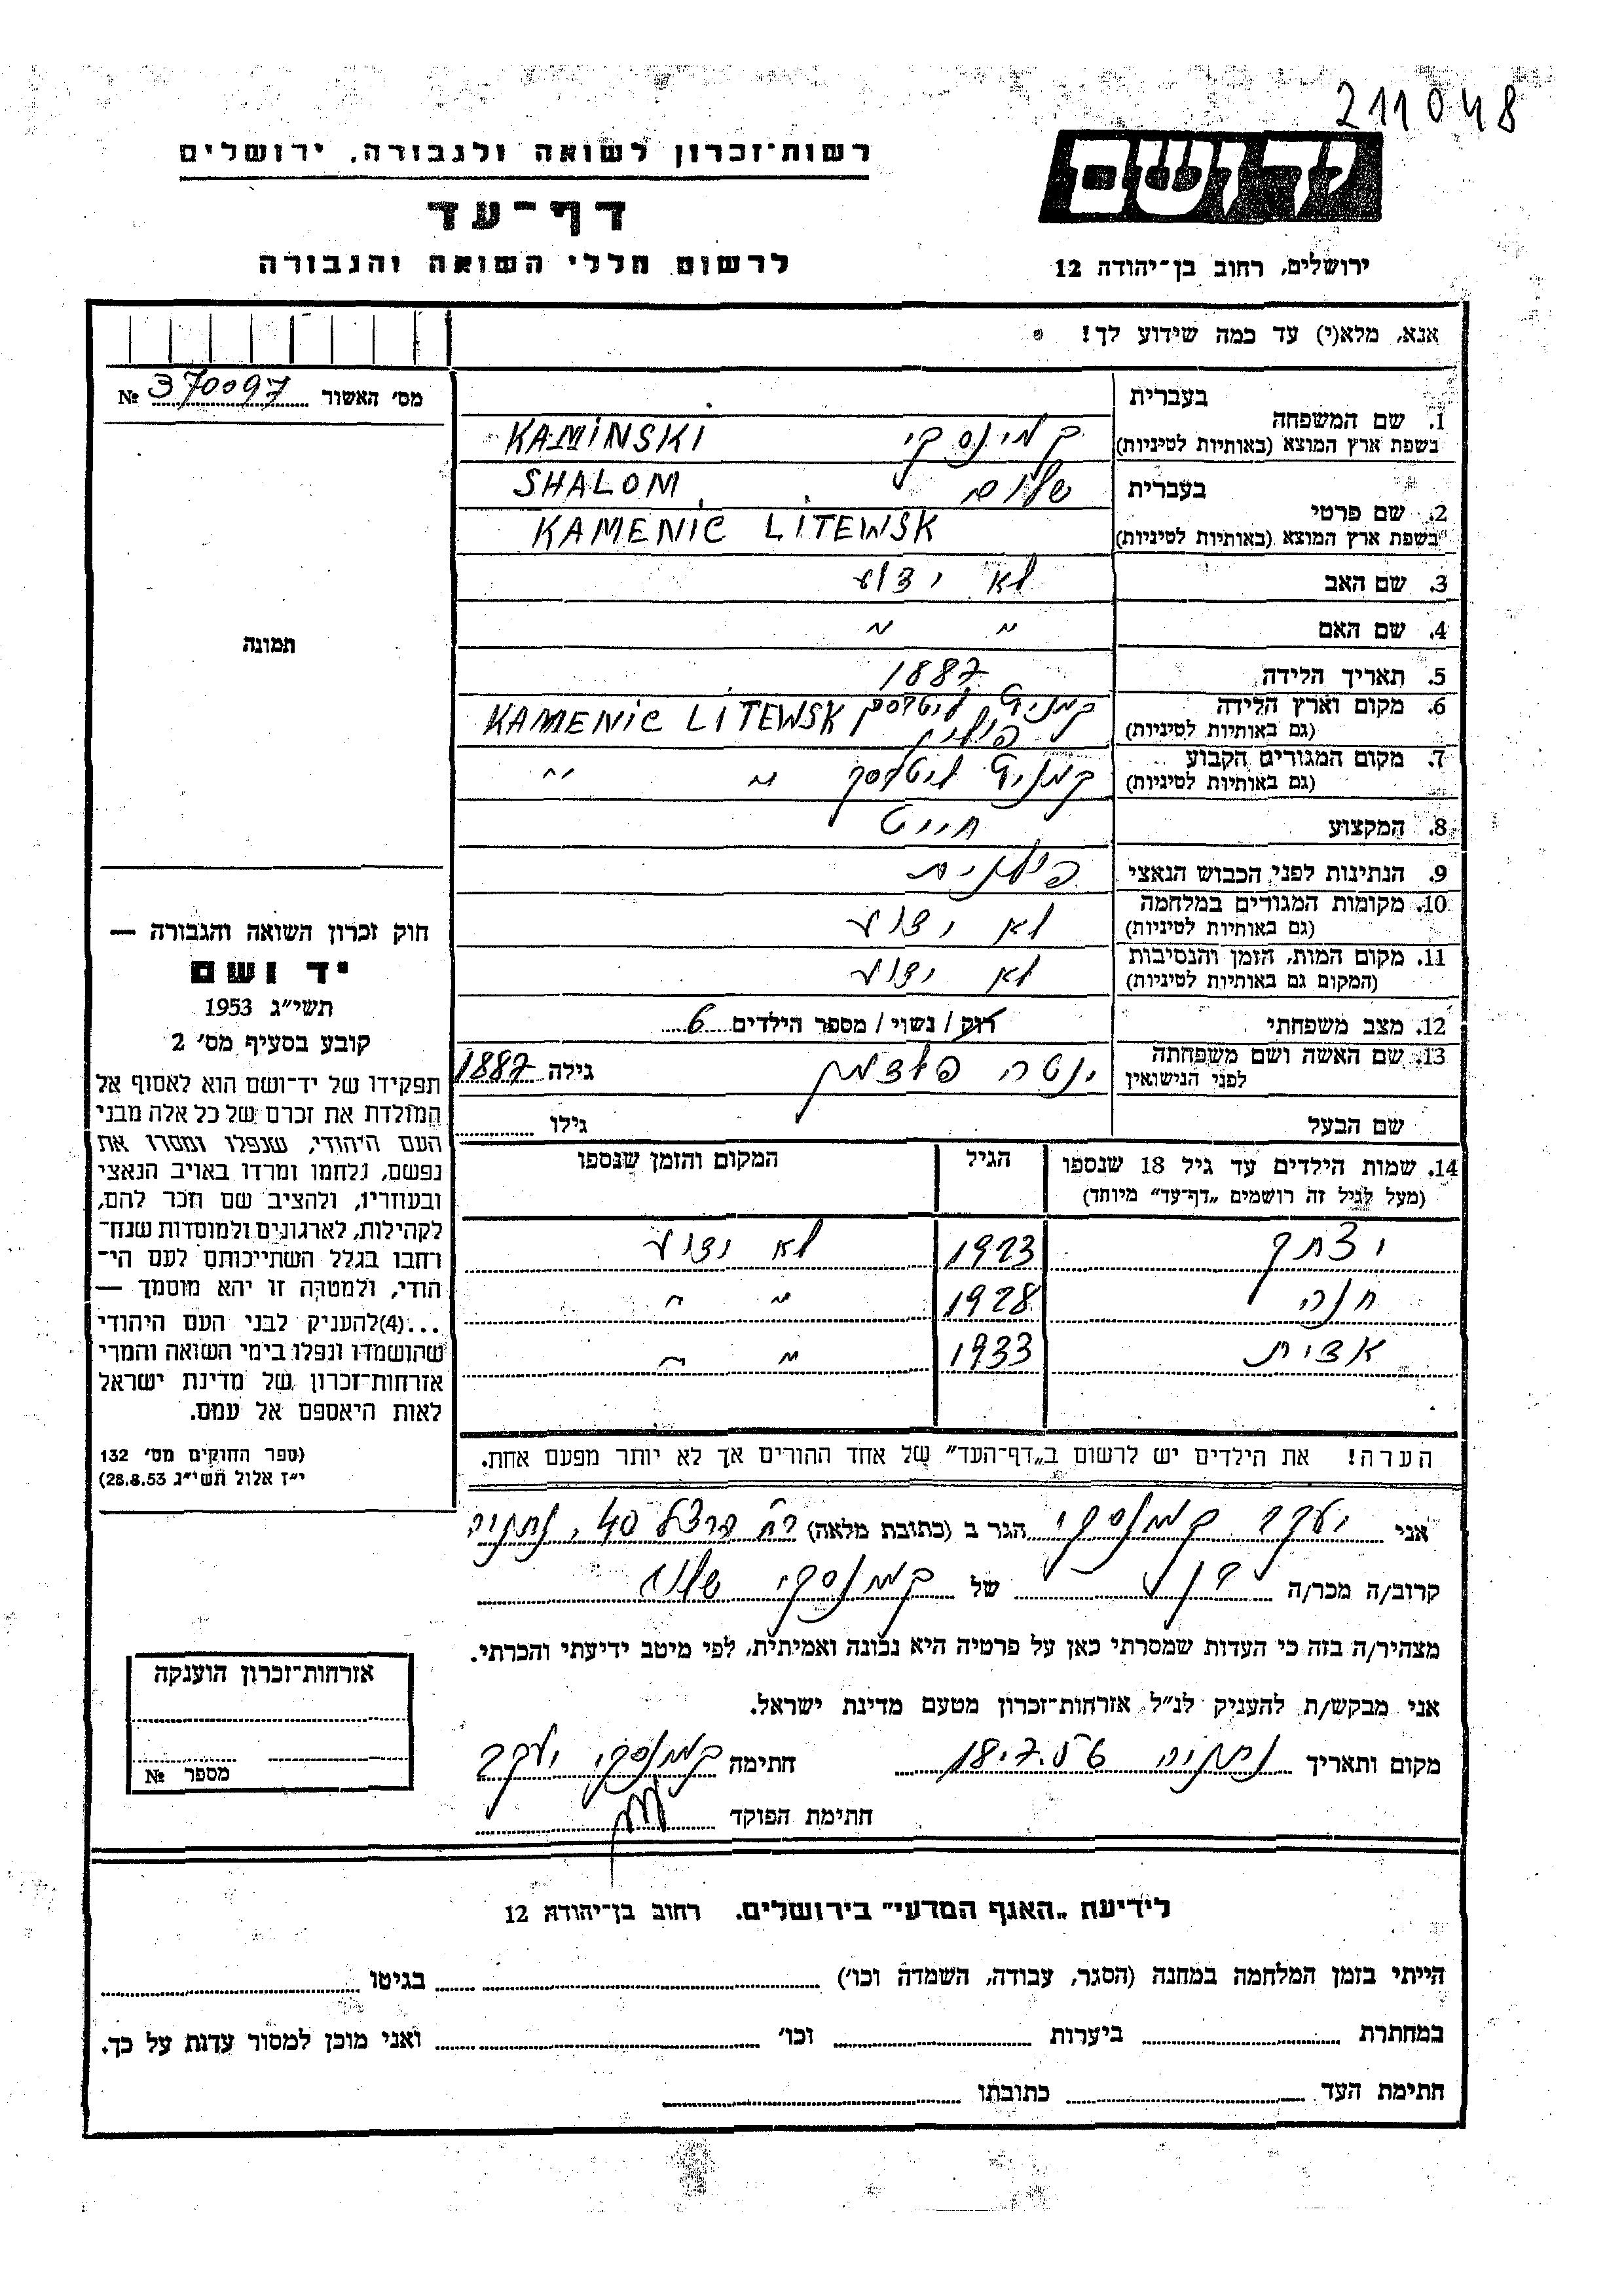 211048
יד ושם
רשות־זכרון לשואה ולגבורה, ירושלים
דף־עד
לרשום חללי השואה והגבורה
ירושלים, רחוב בן־יהודה 12
אנא, מלא(י) עד כמה שידוע לך!
מס׳ האשור 370097 №
תמונה
חוק זכרון השואה והגבורה —
יד ושם
תשי״ג 1953
קובע בסעיף מס׳ 2
תפקידו של יד־ושם הוא לאסוף אל
המולדת את זכרם של כל אלה מבני
העם היהודי, שנפלו ומסרו את
נפשם, נלחמו ומרדו באויב הנאצי
ובעוזריו, ולהציב שם וזכר להם,
לקהילות, לארגונים ולמוסדות שנח־
רחבו בגלל השתייכותם לעם הי־
הודי, ולמטרה זו יהא מוסמך —
...(4)להעניק לבני העם היהודי
שהושמדו ונפלו בימי השואה והמרי
אזרחות־זכרון של מדינת ישראל
לאות היאספם אל עמם.
(ספר החוקים מס׳ 132
י״ז אלול תשי״ג 28.8.53)
בעברית
1. שם המשפחה
בשפת ארץ המוצא (באותיות לטיניות)
קמינסקי KAMINSKI
בעברית
שלום SHALOM
2. שם פרטי
בשפת ארץ המוצא (באותיות לטיניות)
KAMENIC LITEWSK
3. שם האב לא ידוע
4. שם האם " "
5. תאריך הלידה 1887
6. מקום וארץ הלידה
(גם באותיות לטיניות)
קמניץ ליטבסק KAMENIC LITEWSK
פולין
7. מקום המגורים הקבוע
(גם באותיות לטיניות)
קמניץ ליטבסק " "
8. המקצוע חייט
9. הנתינות לפני הכבוש הנאצי פולנית
10. מקומות המגורים במלחמה
(גם באותיות לטיניות)
לא ידוע
11. מקום המות, הזמן והנסיבות
(המקום גם באותיות לטיניות)
לא ידוע
12. מצב משפחתי רוק / נשוי / מספר הילדים 6
13. שם האשה ושם משפחתה
לפני הנישואין
ינטה גילה 1887
שם הבעל גילו
14. שמות הילדים עד גיל 18 שנספו
(מעל לגיל זה רושמים „דף־עד״ מיוחד)
הגיל
המקום והזמן שנספו
יצחק 1923 לא ידוע
חנה 1928 " "
1933 " "
הערה! את הילדים יש לרשום ב„דף־העד״ של אחד ההורים אך לא יותר מפעם אחת.
אני יעקב קמנסקי הגר ב (כתובת מלאה) רח הרצל 40, נתניה
קרוב/ה מכר/ה בן של קמנסקי שלום
מצהיר/ה בזה כי העדות שמסרתי כאן על פרטיה היא נכונה ואמיתית, לפי מיטב ידיעתי והכרתי.
אני מבקש/ת להעניק לנ״ל אזרחות־זכרון מטעם מדינת ישראל.
מקום ותאריך נתניה 18.7.56 חתימה קמנסקי יעקב
חתימת הפוקד
אזרחות־זכרון הוענקה
מספר №
לידיעת „האגף המדעי״ בירושלים. רחוב בן־יהודה 12
הייתי בזמן המלחמה במחנה (הסגר, עבודה, השמדה וכו׳) בגיטו
במחתרת ביערות וכו׳ ואני מוכן למסור עדות על כך.
חתימת העד כתובתו